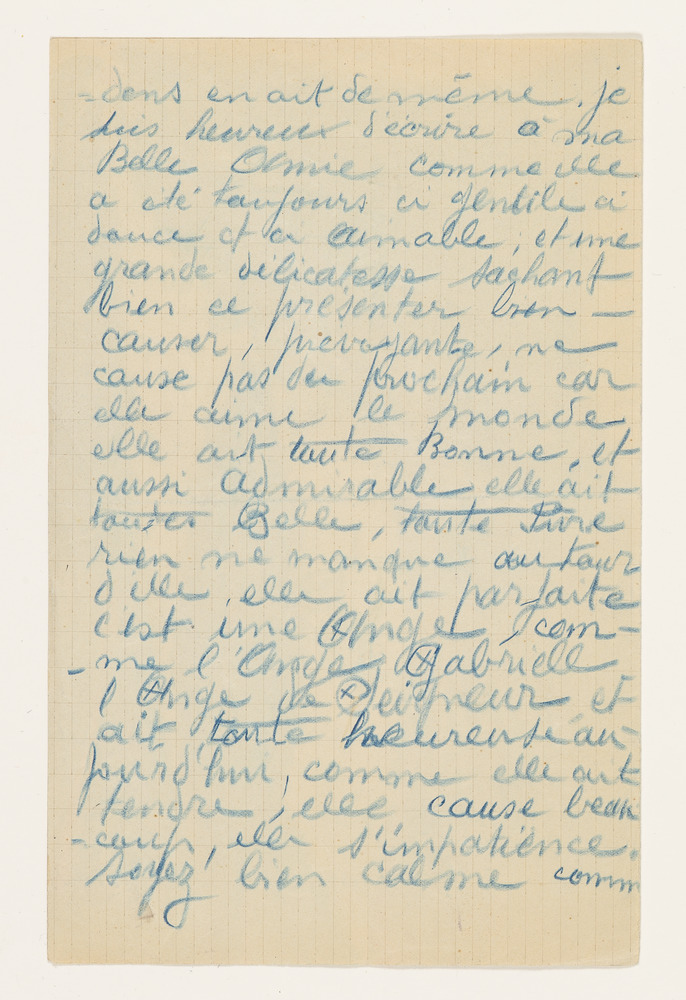 -dons en ait de même, je
suis heureux d'écrire à ma
Belle Amie comme elle
a été toujours ci gentile ci
douce et ci aimable, et une
grande délicatesse sachant
bien ce présenter bien
causer, prévoyante, ne
cause pas du prochain car
elle aime le monde
elle ait toute Bonne, et
aussi admirable elle ait
toutes Belle, toute Pure
rien ne manque autour
d'elle, elle ait parfaite
c'est une Ange, com-
-me l'Ange Gabrielle
l'Ange de Seigneur, et
ait toute heureuse au-
jourd'hui, comme elle ait
tendre, elle cause beau
-coup, elle s'impatience.
Soyez bien calme comm